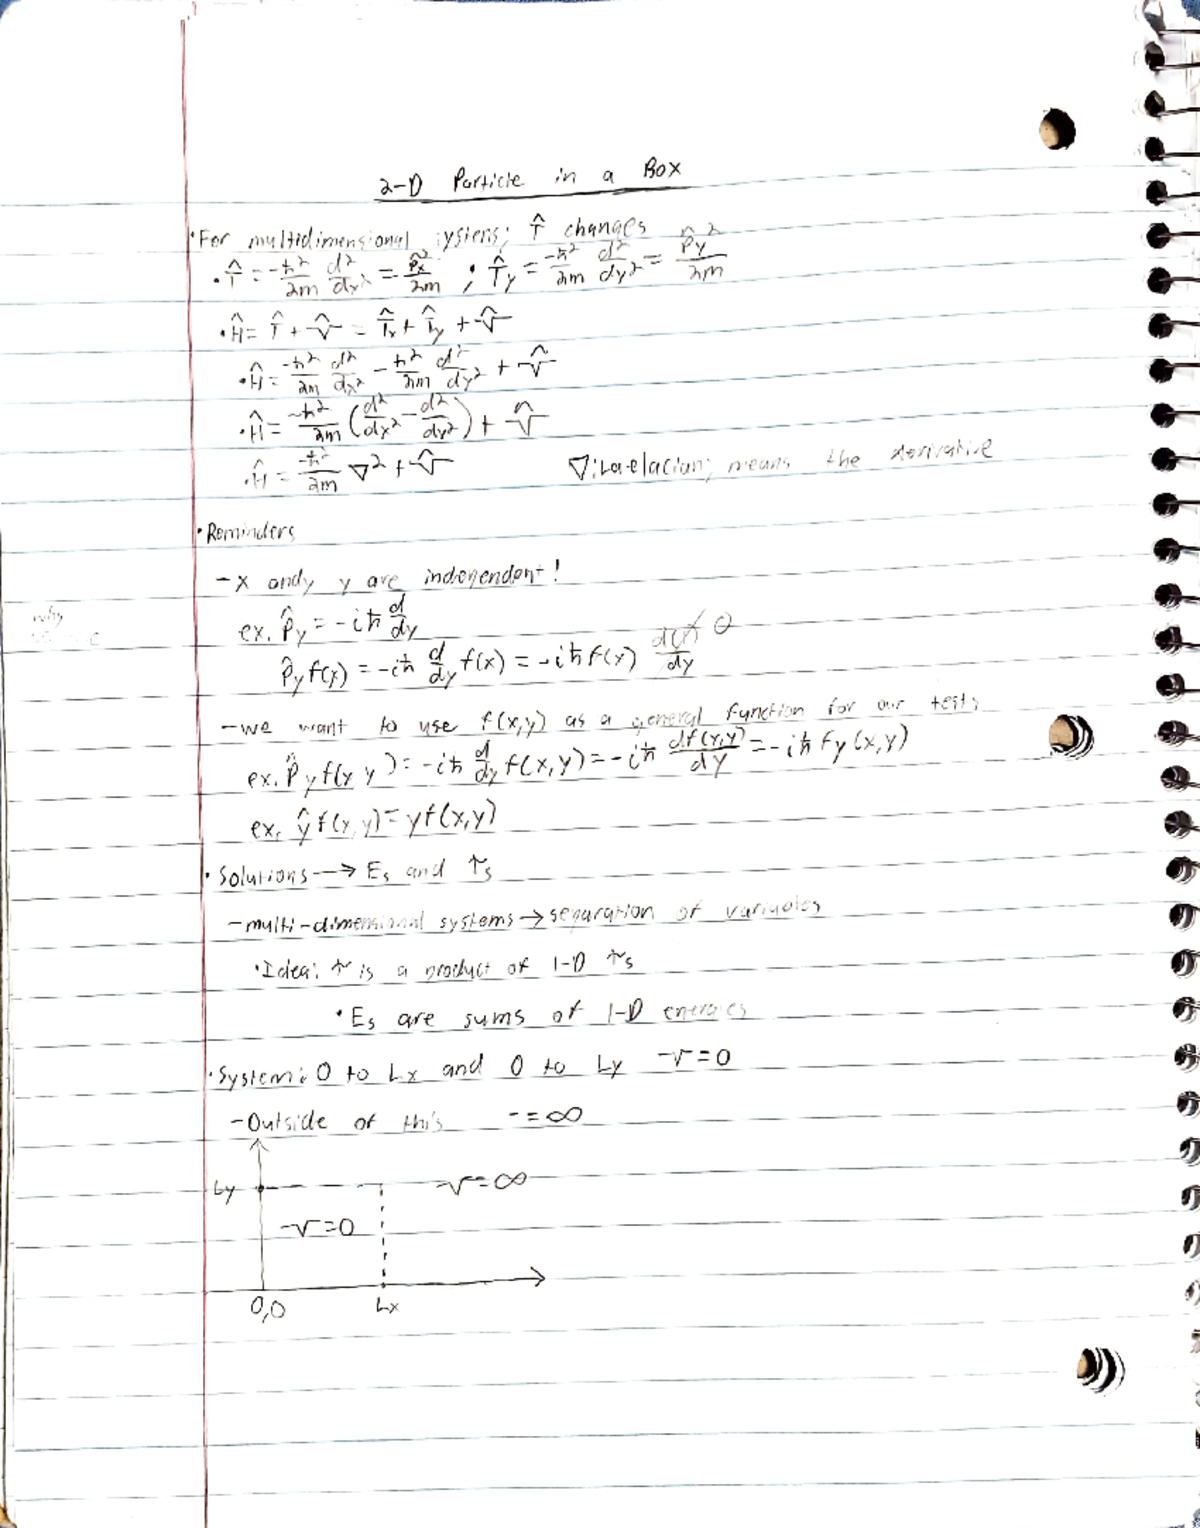 2-D Particle in a Box
•For multidimensional systems; T̂ changes
•T̂ = -ħ²/2m d²/dx² = p̂x²/2m ; T̂y = -ħ²/2m d²/dy² = p̂y²/2m
•Ĥ = T̂ + V̂ = T̂x + T̂y + V̂
•Ĥ = -ħ²/2m d²/dx² - ħ²/2m d²/dy² + V̂
•Ĥ = -ħ²/2m (d²/dx² - d²/dy²) + V̂
•Ĥ = -ħ²/2m ∇² + V̂ ∇: means the derivative
•Reminders
-x andy y are independent!
why
ex. p̂y = -iħ d/dy
p̂y f(x) = -iħ d/dy f(x) = -iħ f(x) d(1)/dy 0
-we want to use f(x,y) as a general function for our tests
ex. p̂y f(x y) = -iħ d/dy f(x,y) = -iħ df(x,y)/dy = -iħ fy(x,y)
ex. ŷ f(x,y) = yf(x,y)
•Solutions → Es and ψs
-multi-dimensional systems → separation of variables
•Idea: ψ is a product of 1-D ψs
•Es are sums of 1-D energies
•System: 0 to Lx and 0 to Ly V=0
-Outside of this = ∞
Ly V=∞
V=0
0,0 Lx